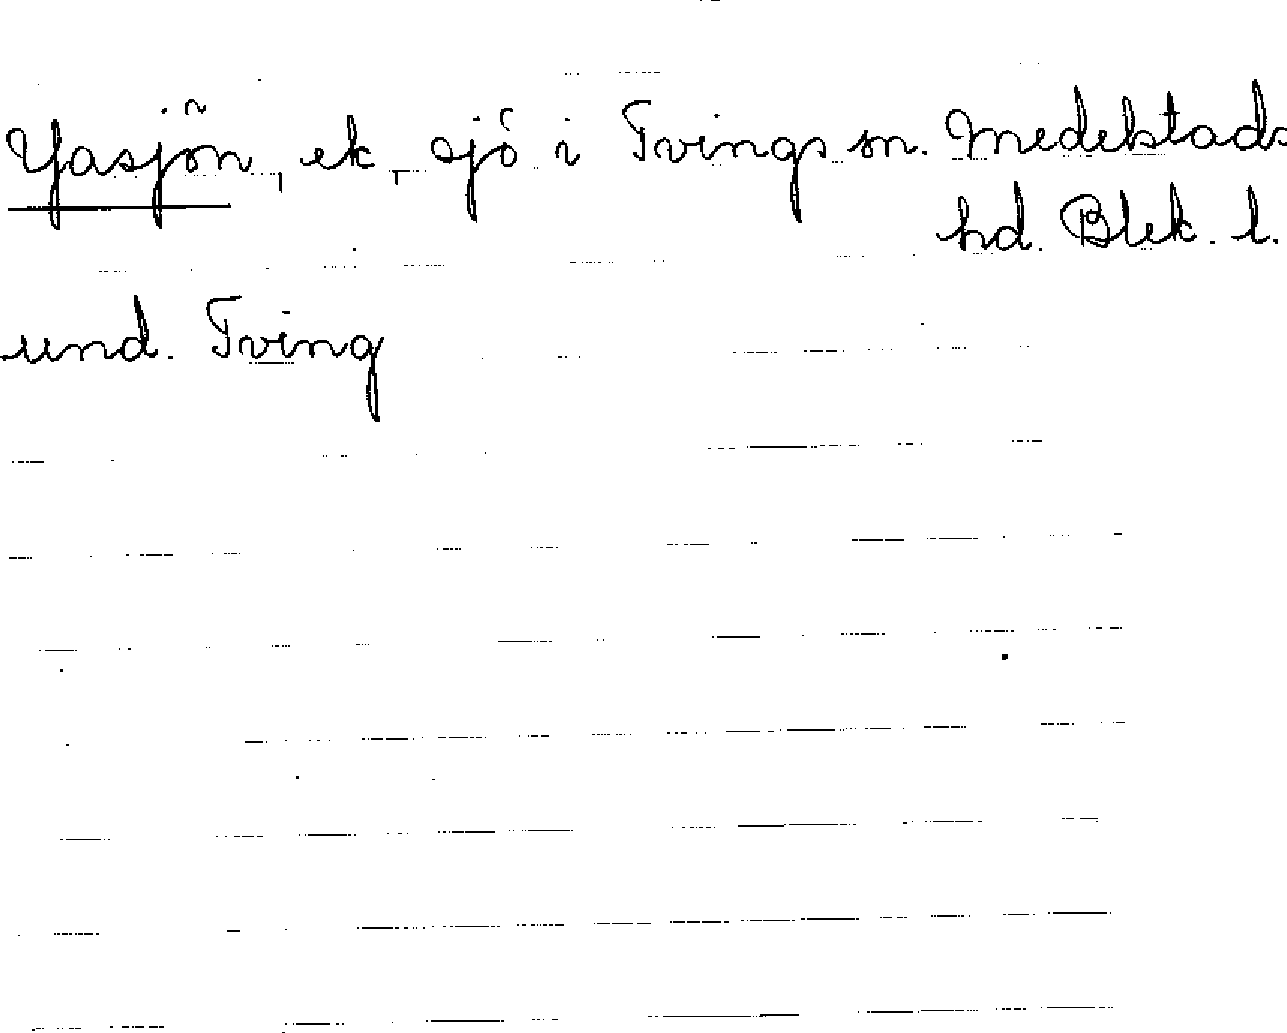 Yasjön, ek, sjö i Tvings sn. Medelstads
hd. Blek. l.
und. Tving